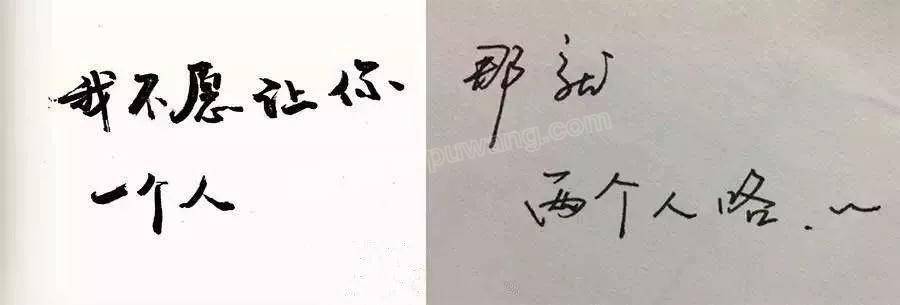 我不愿让你
一个人
那就
两个人咯.~
puwang.com